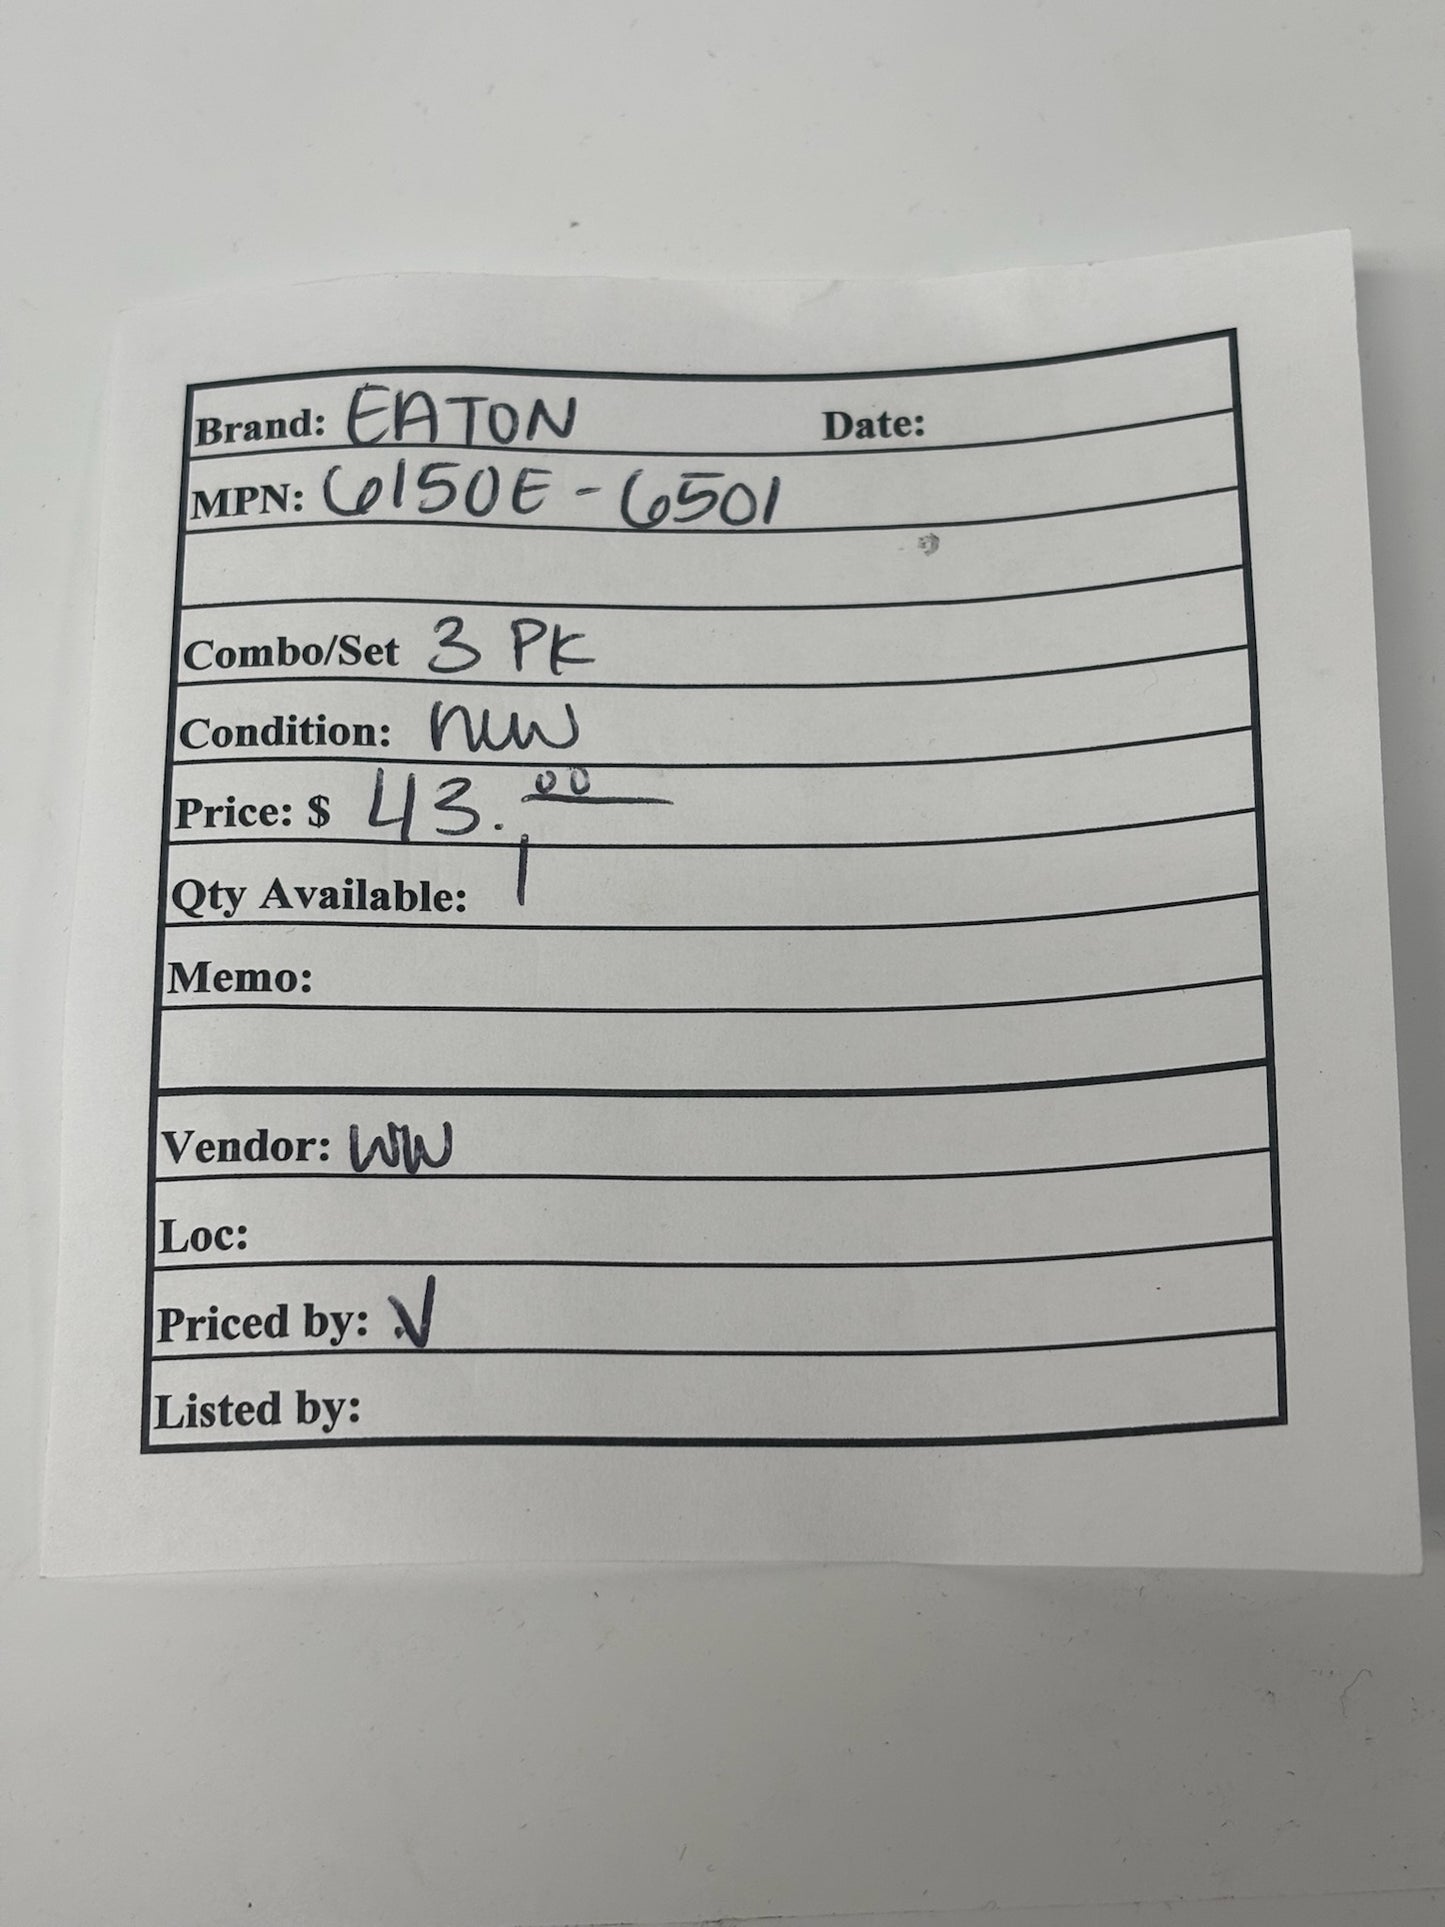 Brand: EATON Date:
MPN: 6150E - 6501
Combo/Set 3 PK
Condition: new
Price: $ 43.00
Qty Available: 1
Memo:
Vendor: WW
Loc:
Priced by: V
Listed by: